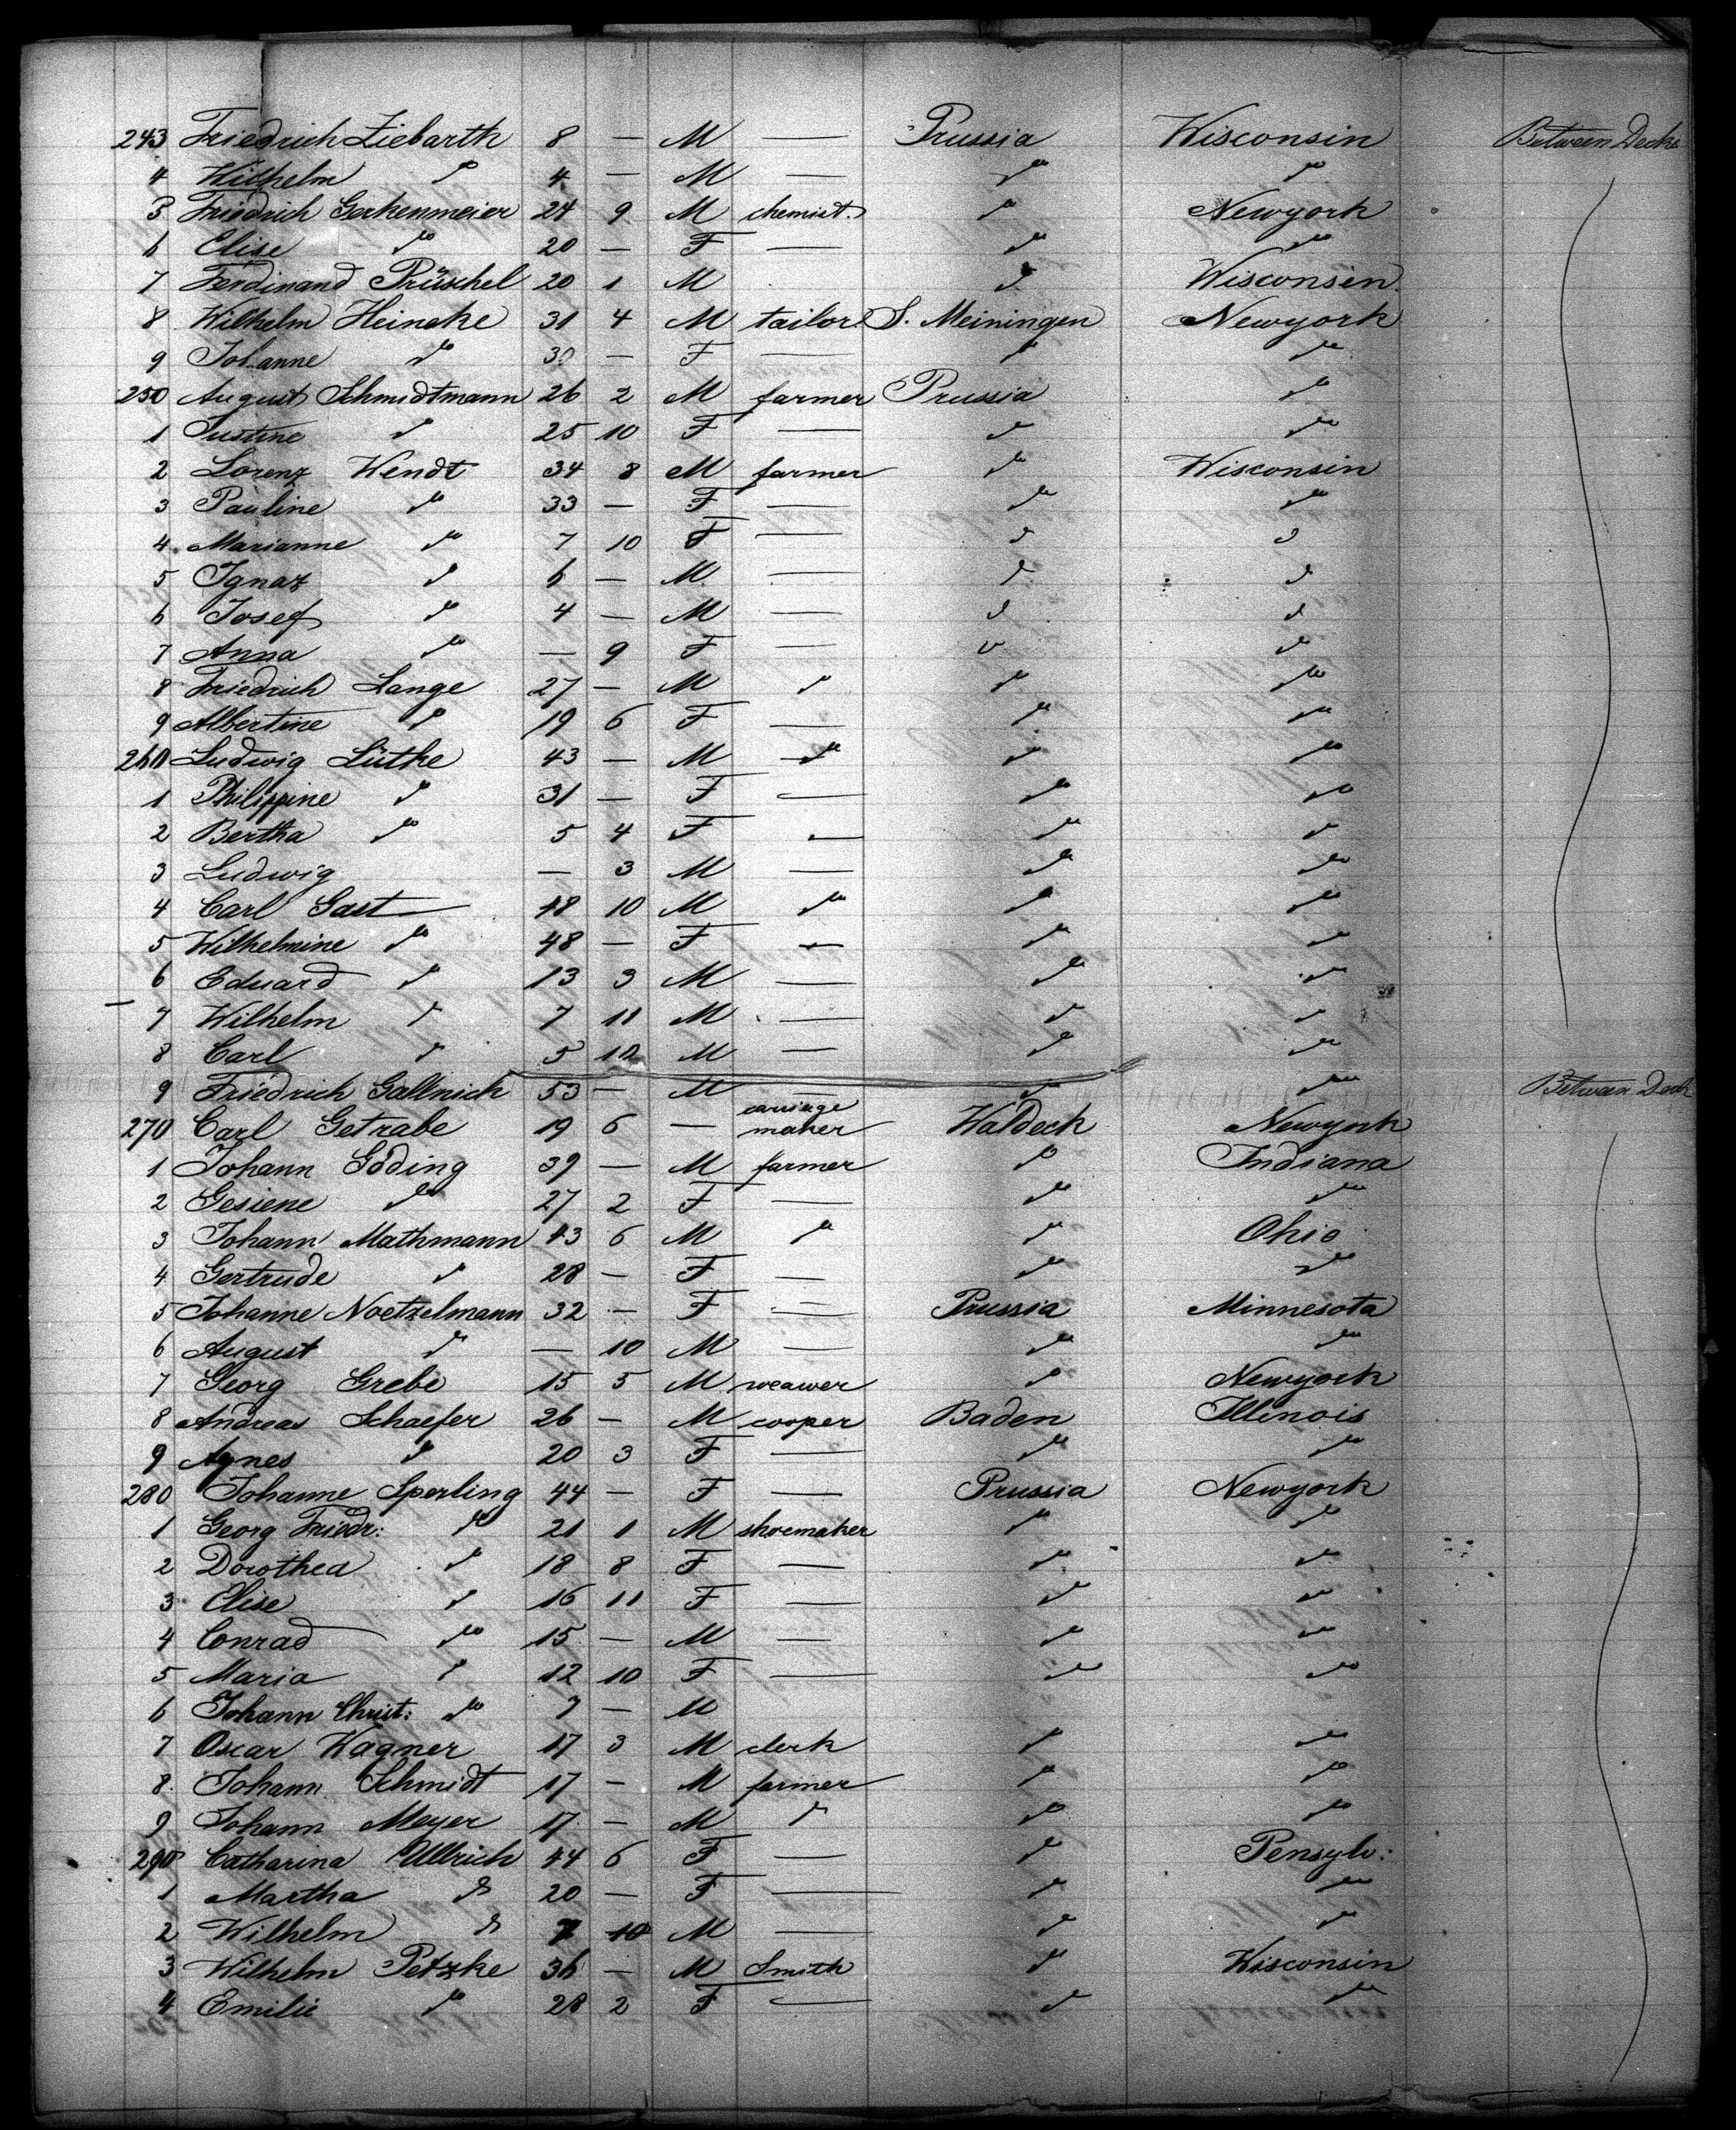 243 Friedrich Ziebarth 8 — M — Prussia Wisconsin Between Decks
4 Wilhelm do 4 — M — do do
5 Friedrich Gerkenmeier 24 9 M chemist. do Newyork
6 Elise do 20 — F — do do
7 Ferdinand Prüschel 20 1 M do Wisconsin
8 Wilhelm Heincke 31 4 M tailor S. Meiningen Newyork
9 Johanne do 30 — F — do do
250 August Schmidtmann 26 2 M farmer Prussia do
1 Justine do 25 10 F — do do
2 Lorenz Wendt 34 8 M farmer do Wisconsin
3 Pauline do 33 — F — do do
4 Marianne do 7 10 F — do do
5 Ignaz do 6 — M — do do
6 Josef do 4 — M — do do
7 Anna do — 9 F — do do
8 Friedrich Lange 27 — M do do do
9 Albertine do 19 6 F — do do
260 Ludwig Lütke 43 — M do do do
1 Philippine do 31 — F — do do
2 Bertha do 5 4 F — do do
3 Ludwig — 3 M — do do
4 Carl Gast 48 10 M do do do
5 Wilhelmine do 48 — F — do do
6 Eduard do 13 3 M — do do
7 Wilhelm do 7 11 M — do do
8 Carl do 5 10 M — do do
9 Friedrich Gallnick 53 — M — do do Between Deck
270 Carl Getrabe 19 6 — carriage maker Waldeck Newyork
1 Johann Göding 39 — M farmer do Indiana
2 Gesiene do 27 2 F — do do
3 Johann Mathmann 43 6 M do do Ohio
4 Gertrude do 28 — F — do do
5 Johanne Noetzelmann 32 — F — Prussia Minnesota
6 August do — 10 M — do do
7 Georg Grebe 15 5 M weawer do Newyork
8 Andreas Schaefer 26 — M cooper Baden Illinois
9 Agnes do 20 3 F — do do
280 Johanne Sperling 44 — F — Prussia Newyork
1 Georg Friedr: do 21 1 M shoemaker do do
2 Dorothea do 18 8 F — do do
3 Elise do 16 11 F — do do
4 Conrad do 15 — M — do do
5 Maria do 12 10 F — do do
6 Johann Christ: do 7 — M
7 Oscar Wagner 17 3 M clerk do do
8 Johann Schmidt 17 — M farmer do do
9 Johann Meyer 17 — M do do do
290 Catharina Ullrich 44 6 F — do Pensylv:
1 Martha do 20 — F — do do
2 Wilhelm do 7 10 M — do do
3 Wilhelm Petzke 36 — M Smith do Wisconsin
4 Emilie do 28 2 F — do do